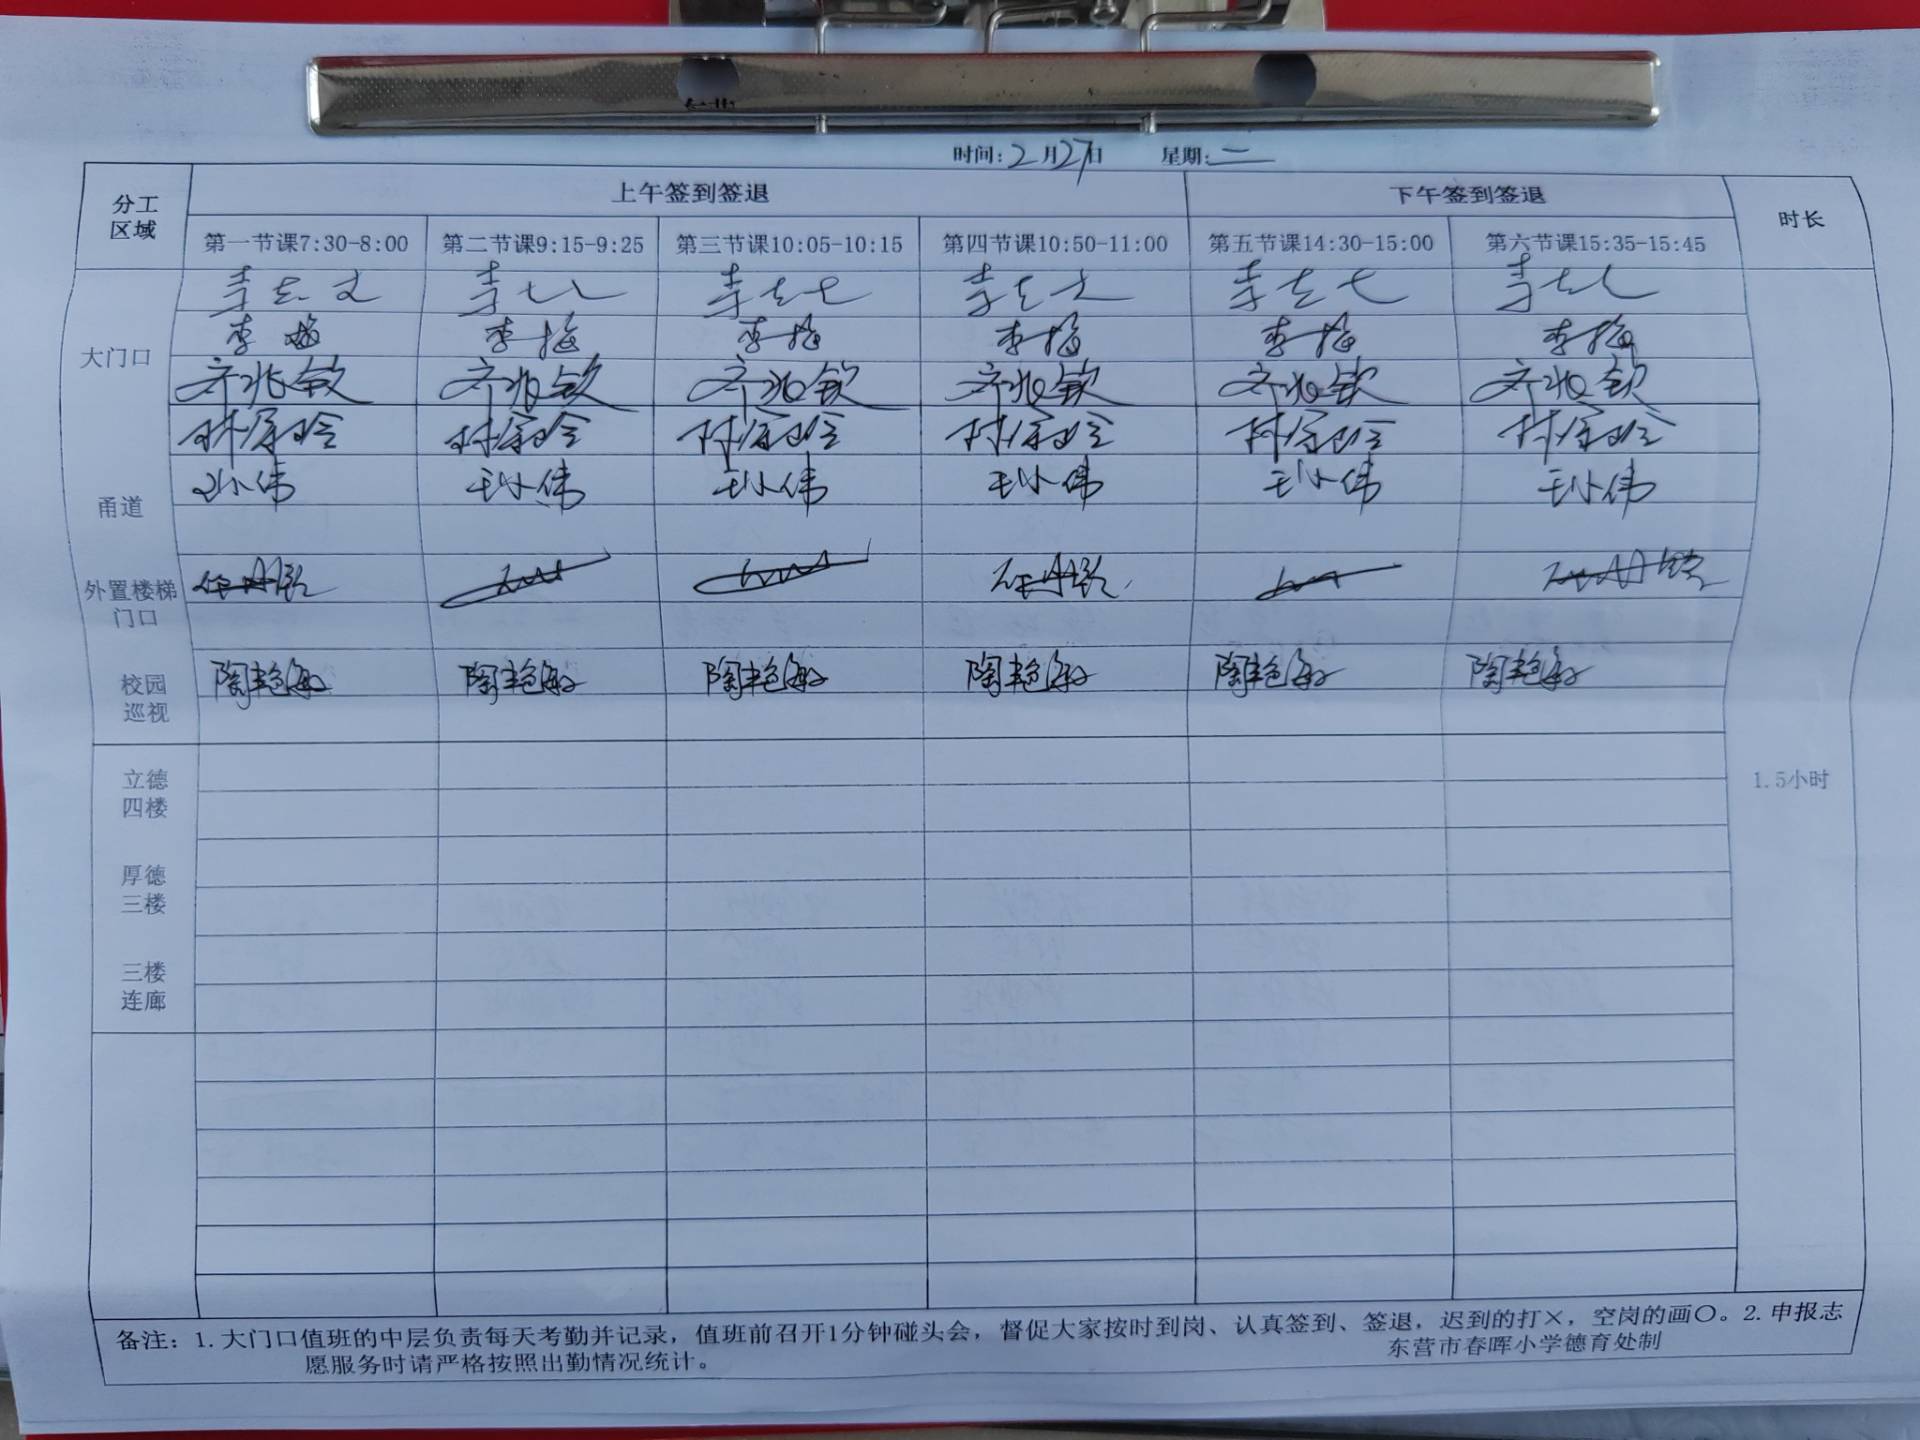 时间:2月27日 星期:二
分工区域 上午签到签退 下午签到签退 时长
第一节课7:30-8:00 第二节课9:15-9:25 第三节课10:05-10:15 第四节课10:50-11:00 第五节课14:30-15:00 第六节课15:35-15:45
李 李 李 李 李 李
大门口 李梅 李梅 李梅 李梅 李梅 李梅
齐兆钦 齐兆钦 齐兆钦 齐兆钦 齐兆钦 齐兆钦
甬道 王小伟 王小伟 王小伟 王小伟 王小伟
外置楼梯门口
校园巡视 陶艳敏 陶艳敏 陶艳敏 陶艳敏 陶艳敏 陶艳敏
立德四楼 1.5小时
厚德三楼
三楼连廊
备注：1.大门口值班的中层负责每天考勤并记录，值班前召开1分钟碰头会，督促大家按时到岗、认真签到、签退，迟到的打×，空岗的画〇。2.申报志
愿服务时请严格按照出勤情况统计。 东营市春晖小学德育处制